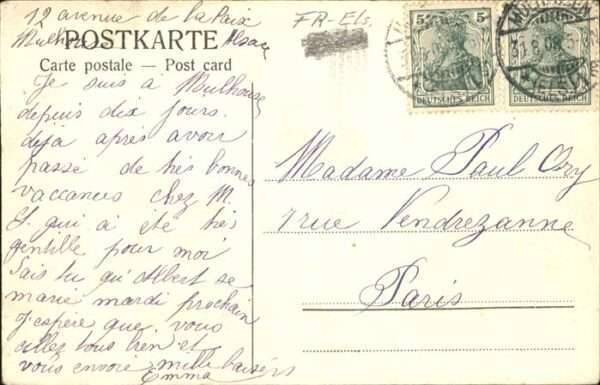 12 avenue de la Paix
Mulhouse Alsace
FR-Els.
POSTKARTE
Carte postale — Post card
Je suis à Mulhouse
depuis dix jours
déja après avoir
passé de très bonnes
vaccances chez M.
et qui a été très
gentille pour moi
Sais tu qu'Albert se
marie mardi prochain
J'espère que vous
allez tous bien et
vous envoie mille baisers
Emma
5 5
DEUTSCHES REICH
DEUTSCHES REICH
MÜLHAUSEN
31.8.08
(ELS.)
Madame Paul Ory
7 rue Vendrezanne
Paris